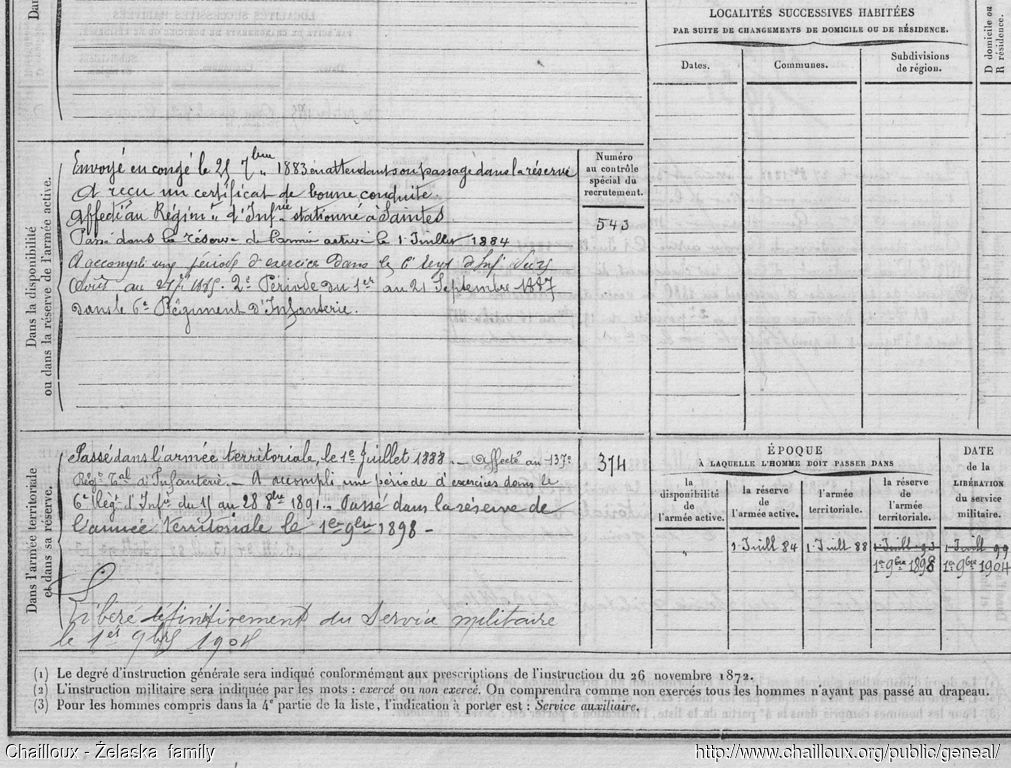 Dan
LOCALITÉS SUCCESSIVES HABITÉES
PAR SUITE DE CHANGEMENTS DE DOMICILE OU DE RÉSIDENCE.
Dates.
Communes.
Subdivisions
de région.
D domicile ou
R résidence.
Dans la disponibilité
ou dans la réserve de l'armée active.
Envoyé en congé le 25 7bre 1883 en attendant son passage dans la réserve
A reçu un certificat de bonne conduite
Affecté au Régimt d'Infrie stationné à Saintes
Passé dans la réserve de l'armée active le 1 Juillet 1884
A accompli une période d'exercice dans le 6e Regt d'Inf
Août au 1885. 2e Période du 1er au 21 Septembre 1887
dans le 6e Régiment d'Infanterie.
Numéro
au contrôle
spécial du
recrutement.
543
Dans l'armée territoriale
et dans sa réserve.
Passé dans l'armée territoriale, le 1er Juillet 1888. Affecté au 137e
Régt Tal d'Infanterie. A accompli une période d'exercices dans le
6e Régt d'Infie du 15 au 28 8bre 1891. Passé dans la réserve de
l'armée territoriale le 1er 9bre 1898
Libéré définitivement du Service militaire
le 1er 9bre 1904
374
ÉPOQUE
À LAQUELLE L'HOMME DOIT PASSER DANS
la
disponibilité
de
l'armée active.
la réserve
de
l'armée active.
l'armée
territoriale.
la réserve
de
l'armée
territoriale.
DATE
de la
LIBÉRATION
du service
militaire.
"
1 Juill 84
1 Juill 88
1 Juill 93
1er 9bre 1898
1 Juill 99
1er 9bre 1904
(1) Le degré d'instruction générale sera indiqué conformément aux prescriptions de l'instruction du 26 novembre 1872.
(2) L'instruction militaire sera indiquée par les mots : exercé ou non exercé. On comprendra comme non exercés tous les hommes n'ayant pas passé au drapeau.
(3) Pour les hommes compris dans la 4e partie de la liste, l'indication à porter est : Service auxiliaire.
Chailloux - Želaska family
http://www.chailloux.org/public/geneal/